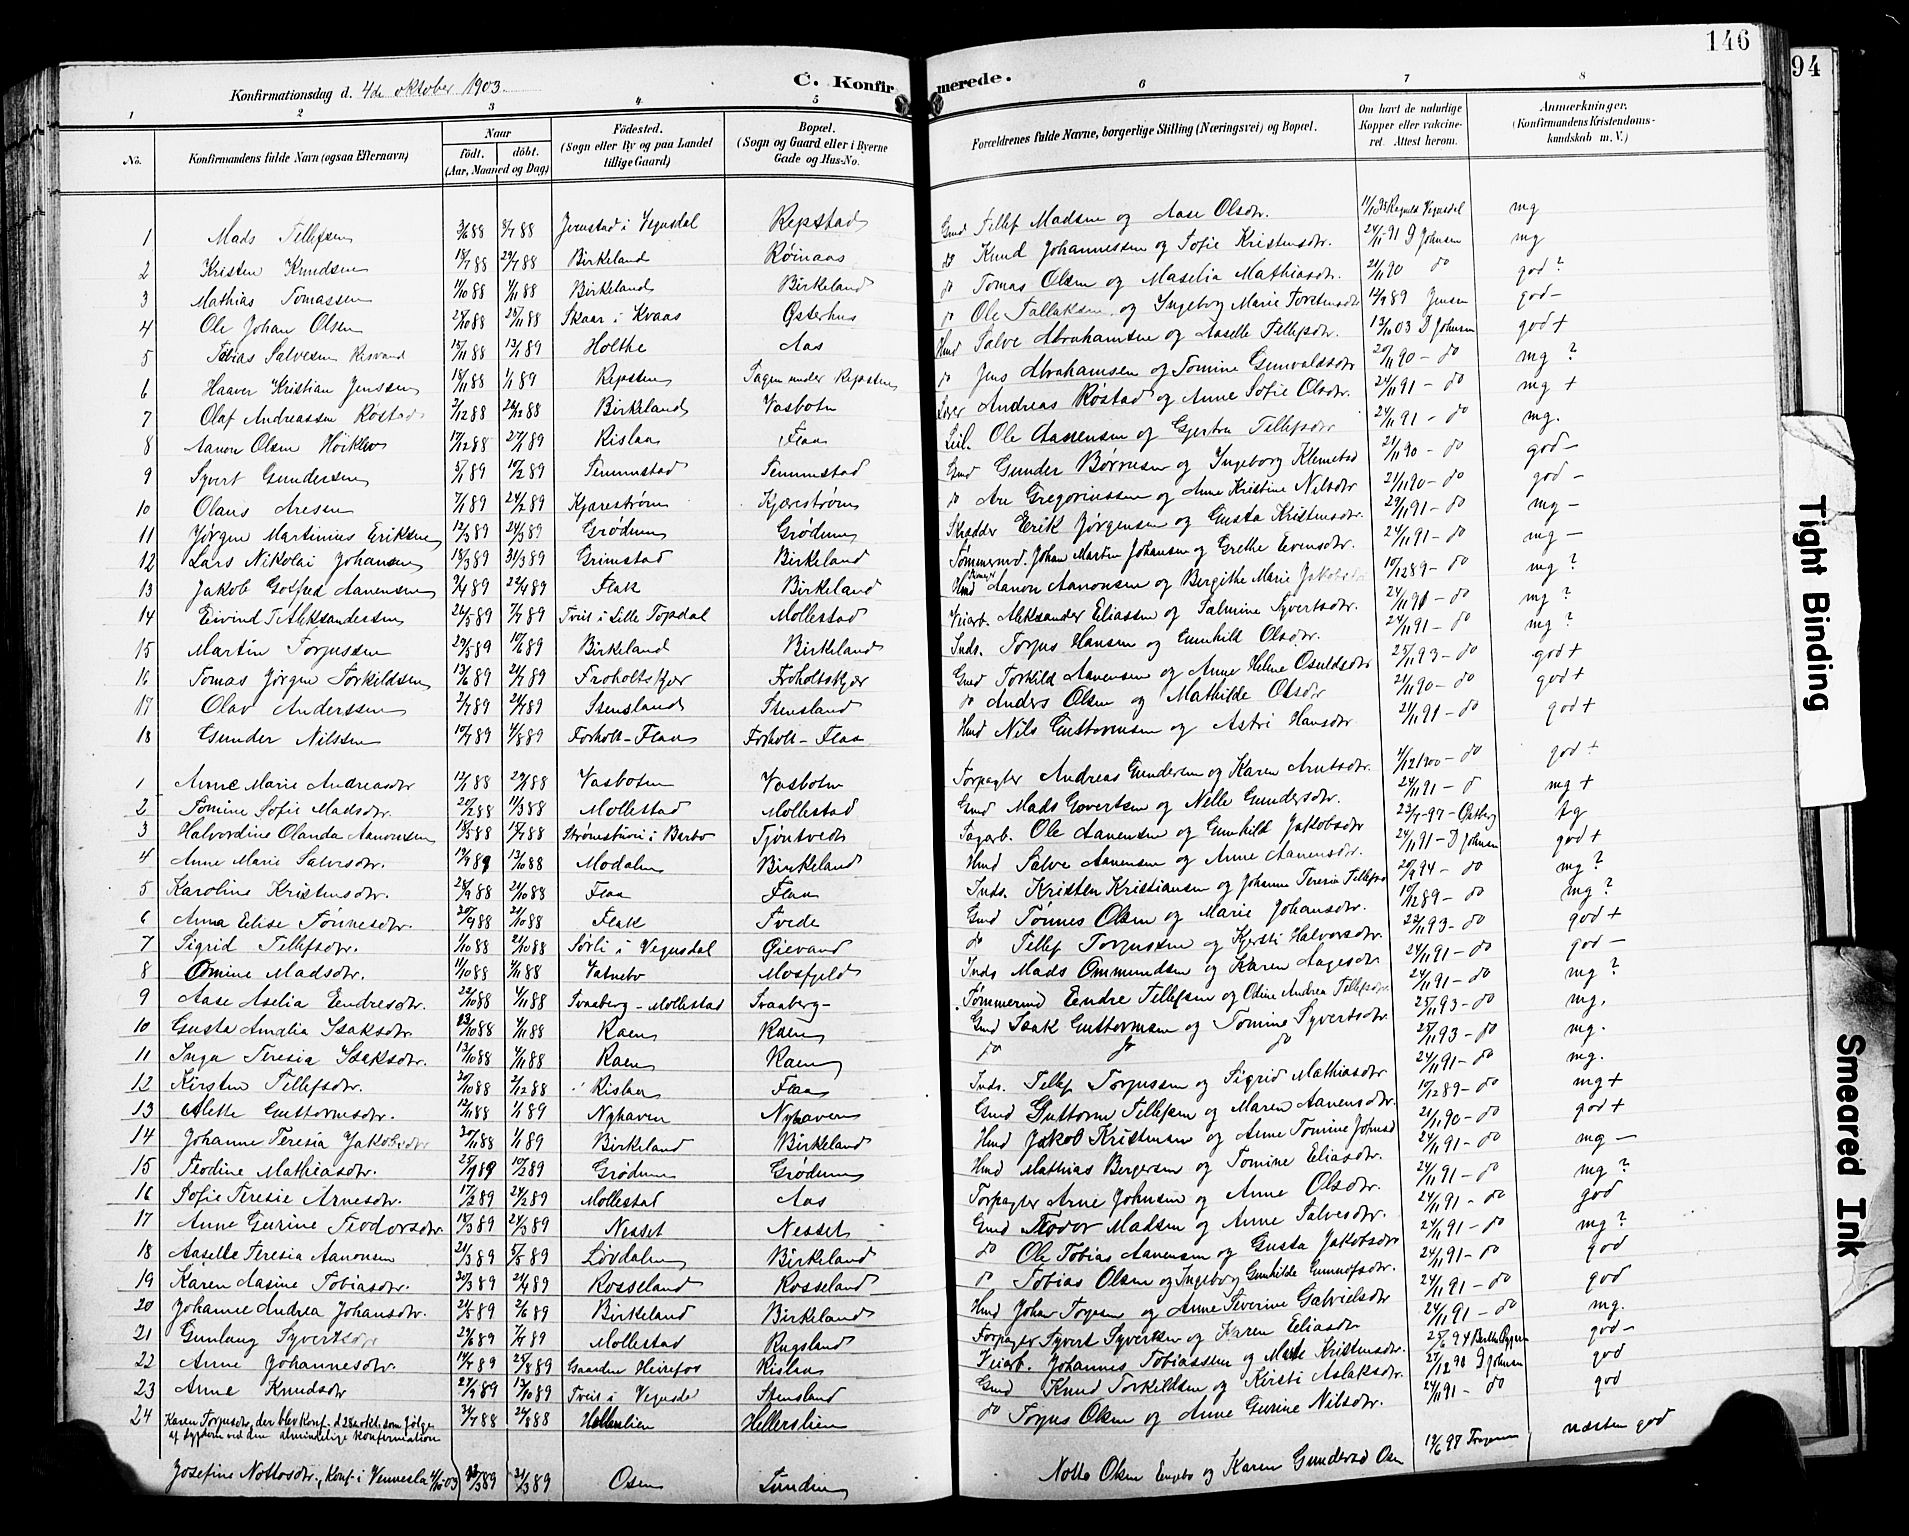 146
94
Konfirmationsdag d. 4de oktober 1903.
C. Konfirmerede.
1 2 3 4 5 6 7 8
No. Konfirmandens fulde Navn (ogsaa Efternavn) Naar født. døbt. (Aar, Maaned og Dag) Fødested. (Sogn eller By og paa Landet tillige Gaard) Bopæl. (Sogn og Gaard eller i Byerne Gade og Hus-No. Forældrenes fulde Navne, borgerlige Stilling (Næringsvei) og Bopæl. Om havt de naturlige Kopper eller vaccineret. Attest herom. Anmærkninger. (Konfirmandens Kristendomskundskab m. V.)
1 Mads Tellefsen 88 88 i Vegusdal Repstad Gmd Tellef Madsen og Aase Olsdtr. mg
2 Kristen Knudsen 18/7 88 29/7 88 Birkeland Røinaas do Knud Johannessen og Sofie Kristensdtr. 24/11 91 D Johnsen mg
3 Mathias Tomassen 11/10 88 4/11 88 Birkeland Birkeland do Tomas Olsen og Maselia Mathiasdtr. 21/11 90 do god ?
4 Ole Johan Olsen 88 25/11 88 Skaar i Kvaas Østerhus do Ole Tallaksen og Ingeborg Marie Torstensdtr 12/9 89 Jensen god -
5 Tobias Salvesen 15/11 88 13/1 89 Holthe Aas Hmd Salve Abrahamsen og Aaselle Tellefsdtr. 13/10 03 D Johnsen god +
6 Haaver Kristian Jenssen 18/11 88 1/1 89 Repsten Tagen under Repsten do Jens Abrahamsen og Tomine Gunvaldsdtr. 20/11 90 - do mg ?
7 Olaf Andreassen Røstad 2/12 88 26/12 88 Birkeland Vasbotn Lærer Andreas Røstad og Anne Sofie Olsdtr. 24/11 91 - do mg +
8 Aanon Olsen 17/12 88 27/1 89 Rislaa Flaa Leil. Ole Aanensen og Gjertru Tellefsdtr 24/11 91 - do mg.
9 Syvert Gundersen 5/1 89 10/2 89 Senumstad Senumstad Gmd Gunder Børrusen og Ingeborg Klemetsd 21/11 90 - do god -
10 Olaus Aresen 7/1 89 24/2 89 Kjærestrøm Kjærestrøm do Are Gregoriussen og Anne Kristine Nilsdtr 21/11 90 - do god -
11 Jørgen Martinius Eriksen 12/3 89 24/3 89 Grødum Grødum Skrædder Erik Jørgensen og Gusta Kristensdtr. 24/11 91 - do mg -
12 Lars Nikolai Johansen 18/3 89 31/3 89 Grimstad Birkeland Tømmermd. Johan Martin Johansen og Grethe Evensdtr. 24/11 91 - do mg -
13 Jakob Gotfred Aanensen 2/4 89 22/4 89 Flak Birkeland Hmd Aanon Aanonsen og Bergithe Marie Jakobsdtr 10/12 89 - do mg ?
14 Eivind T Aleksandersen 26/5 89 7/7 89 Tveit i Lille Topdal Mollestad Veiarb. Aleksander Eliassen og Salmine Syvertsdtr. 24/11 91 - do mg ?
15 Martin Torjussen 20/5 89 10/6 89 Birkeland Birkeland Inds. Torjus Hansen og Gunhild Olsdtr. 24/11 91 - do mg ?
16 Tomas Jørgen Torkildsen 13/6 89 21/7 89 Froholtskjær Froholtskjær Gmd Torkild Aanensen og Anne Helene Osuldsdtr 25/11 93 - do god +
17 Olav Anderssen 2/7 89 21/7 89 Stensland Stensland do Anders Olsen og Mathilde Olsdtr 21/11 90 - do god +
18 Gunder Nilssen 10/7 89 4/8 89 Forholt-Flaa Forholt-Flaa Hmd Nils Guttormsen og Astri Hansdtr 24/11 91 - do god +
1 Anne Marie Andreasdtr 12/1 88 29/1 88 Vasbotn Vasbotn Forpagter Andreas Gundersen og Karen Arntsdtr. 4/12 1900 - do god +
2 Tomine Sofie Madsdtr. 20/2 88 11/3 88 Mollestad Mollestad Gmd Mads Govertsen og Nelle Gundersdtr. 24/11 91 - d mg +
3 Halvordine Olanda Aanonsen 18/5 88 15/7 88 Strømstuen i Barbo Tjøntvedt Fagarb. Ole Aanensen og Gunhild Jakobsdtr 23/7 97 - tg
4 Anne Marie Salvesdtr. 19/9 88 13/10 88 Modalen Birkeland Hmd Salve Aanensen og Anne Aanensdtr. 24/11 91 - D Johnsen god +
5 Karoline Kristensdtr. 24/9 88 21/10 88 Flaa Flaa Inds. Kristen Kristiansen og Johanne Teresia Tellefsd 20/9 94 - do mg ?
6 Anna Elise Tønnesdtr. 20/9 88 21/10 88 Flak Tvede Gmd Tønnes Olsen og Marie Johansdtr. 10/12 89 - do mg ?
7 Sigrid Tellefsdtr. 1/10 88 21/10 88 Sørli i Vegusdal Øievand do Tellef Torjussen og Kjersti Halvorsdtr. 22/11 93 - do god +
8 Omine Madsdtr. 11/10 88 4/11 88 Vatnebo Mosfjeld Inds Mads Ommundsen og Karen Aagesdtr 24/11 91 - do god -
9 Aase Aselia Eendresdtr. 22/10 88 4/11 88 Svaaberg-Mollestad Svaaberg- Tømmermd Eendre Tellefsen og Odine Andrea Tellefsdtr. 24/11 91 - do mg ?
10 Gusta Amalia Isaksdtr. 13/10 88 4/11 88 Raen Raen Gmd Isak Guttormsen og Tomine Syvertsdtr 25/11 93 - do mg.
11 Inga Teresia Isaksdtr. 13/10 88 4/11 88 Raen Raen do do do 25/11 93 - do mg.
12 Kirsten Tellefsdtr. 20/10 88 2/12 88 Rislaa Flaa Inds. Tellef Torjussen og Sigrid Mathiasdtr 24/11 91 - do mg.
13 Alette Guttormsdtr. 12/11 88 1/1 89 Nyhaven Nyhaven Gmd Guttorm Tellefsen og Maren Aanensdtr. 10/12 89 - do mg +
14 Johanne Teresia Jakobsdtr 20/11 88 1/1 89 Birkeland Birkeland Hmd Jakob Kristensen og Anne Tomine Johnsd 21/11 90 - do god +
15 Teodine Mathiasdtr. 25/1 89 10/2 89 Grødum Grødum Hmd Mathias Bergersen og Tomine Eliasdtr. 24/11 91 - do mg -
16 Sofie Teresie Arnesdtr. 17/2 89 24/2 89 Mollestad Aas Forpagter Arne Johnsen og Anne Olsdtr. 24/11 91 - do mg ?
17 Anne Gurine Teodorsdtr 14/3 89 24/3 89 Nesset Nesset Gmd Teodor Madsen og Anne Salvesdtr. 24/11 91 - do god
18 Aaselle Teresia Aanonsen 21/3 89 5/5 89 Løvdalen Birkeland do Ole Tobias Aanensen og Gusta Jakobsdtr 24/11 91 - do mg ?
19 Karen Aasine Tobiasdtr. 30/3 89 21/4 89 Rosseland Rosseland do Tobias Olsen og Ingeborg Gunhilde Gunnufsdtr. 24/11 91 - do god
20 Johanne Andrea Johansdtr. 21/5 89 2/6 89 Birkeland Birkeland Hmd Johan Torjesen og Anne Severine Gabrielsdtr 24/11 91 - do god
21 Gunlaug Syvertsdtr 29/6 89 7/7 89 Mollestad Rugsland Forpagter Syvert Syvertsen og Karen Eliasdtr 24/11 91 - do mg.
22 Anne Johannesdtr. 14/7 89 25/8 89 Gaarden Heirefos Rislaa Veiarb. Johannes Tobiassen og Marte Kristensdtr. 25/6 94 god -
23 Anne Knudsdtr 27/9 89 13/10 89 Tveit i Vegusdal Stensland Gmd Knud Torkildsen og Kirsti Aslaksdtr. 27/12 90 D Johnsen god
24 Karen Torjusdtr, der blev konf. d 28a okt, som følge 31/7 88 26/8 88 Hellerslien Hellerslien do Torjus Olsen og Anne Gurine Nilsdtr. 24/11 91 - do god
af sygdom ved den almindelige Konfirmation
Josefine Nottosdtr., Konf. i Vennesla 4/10 03 89 31/3 89 Osen Lundin Notto Olsen og Karen Gundersd Osen 19/6 97 næsten god
Tight Binding
Smeared Ink